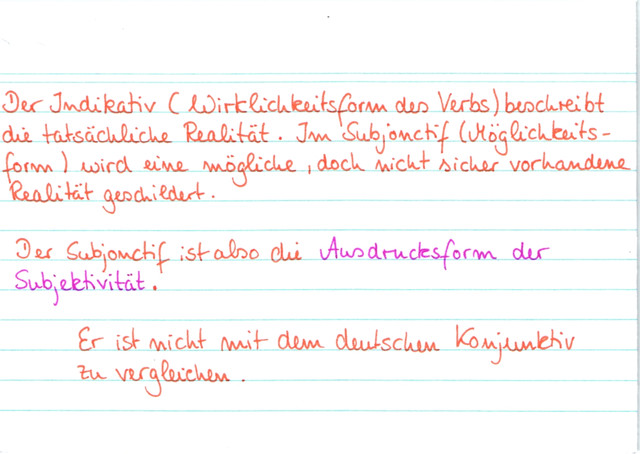 Der Indikativ (Wirklichkeitsform des Verbs) beschreibt
die tatsächliche Realität. Im Subjonctif (Möglichkeits-
form) wird eine mögliche, doch nicht sicher vorhandene
Realität geschildert.
Der Subjonctif ist also die Ausdrucksform der
Subjektivität.
Er ist nicht mit dem deutschen Konjunktiv
zu vergleichen.